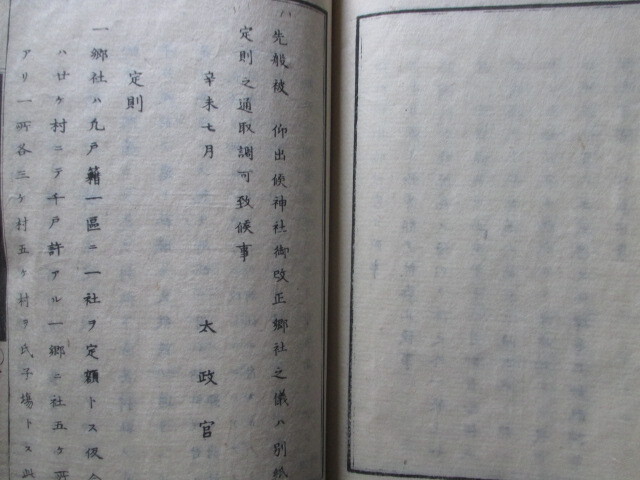 先般被　仰出候神社御改正郷社之儀ハ別紙
定則之通取調可致候事
辛未七月
太政官
定則
一郷社ハ凡戸籍一區ニ一社ヲ定額トス仮令
ハ廿ヶ村ニテ千戸許アル一郷ニ社五ヶ所
アリ一所各三ヶ村五ヶ村ヲ氏子場トス此